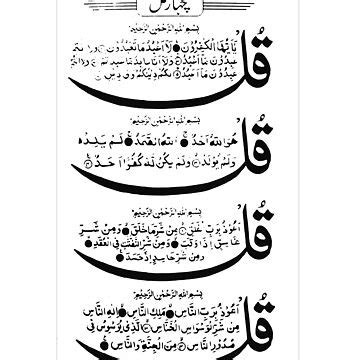 چہار قل
بِسْمِ اللهِ الرَّحْمٰنِ الرَّحِيْمِ
قُلْ
يٰٓاَيُّهَا الْكٰفِرُوْنَ لَآ اَعْبُدُ مَا تَعْبُدُوْنَ وَلَآ اَنْتُمْ
عٰبِدُوْنَ مَآ اَعْبُدُ وَلَآ اَنَا عَابِدٌ مَّا عَبَدْتُّمْ وَلَآ اَنْتُمْ
عٰبِدُوْنَ مَآ اَعْبُدُ لَكُمْ دِيْنُكُمْ وَلِيَ دِيْنِ
بِسْمِ اللهِ الرَّحْمٰنِ الرَّحِيْمِ
قُلْ
هُوَ اللهُ اَحَدٌ اَللهُ الصَّمَدُ لَمْ يَلِدْ
وَلَمْ يُوْلَدْ وَلَمْ يَكُنْ لَّهٗ كُفُوًا اَحَدٌ
بِسْمِ اللهِ الرَّحْمٰنِ الرَّحِيْمِ
قُلْ
اَعُوْذُ بِرَبِّ الْفَلَقِ مِنْ شَرِّ مَا خَلَقَ وَمِنْ شَرِّ
غَاسِقٍ اِذَا وَقَبَ وَمِنْ شَرِّ النَّفّٰثٰتِ فِي الْعُقَدِ
وَمِنْ شَرِّ حَاسِدٍ اِذَا حَسَدَ
بِسْمِ اللهِ الرَّحْمٰنِ الرَّحِيْمِ
قُلْ
اَعُوْذُ بِرَبِّ النَّاسِ مَلِكِ النَّاسِ اِلٰهِ النَّاسِ
مِنْ شَرِّ الْوَسْوَاسِ الْخَنَّاسِ الَّذِيْ يُوَسْوِسُ فِيْ
صُدُوْرِ النَّاسِ مِنَ الْجِنَّةِ وَالنَّاسِ